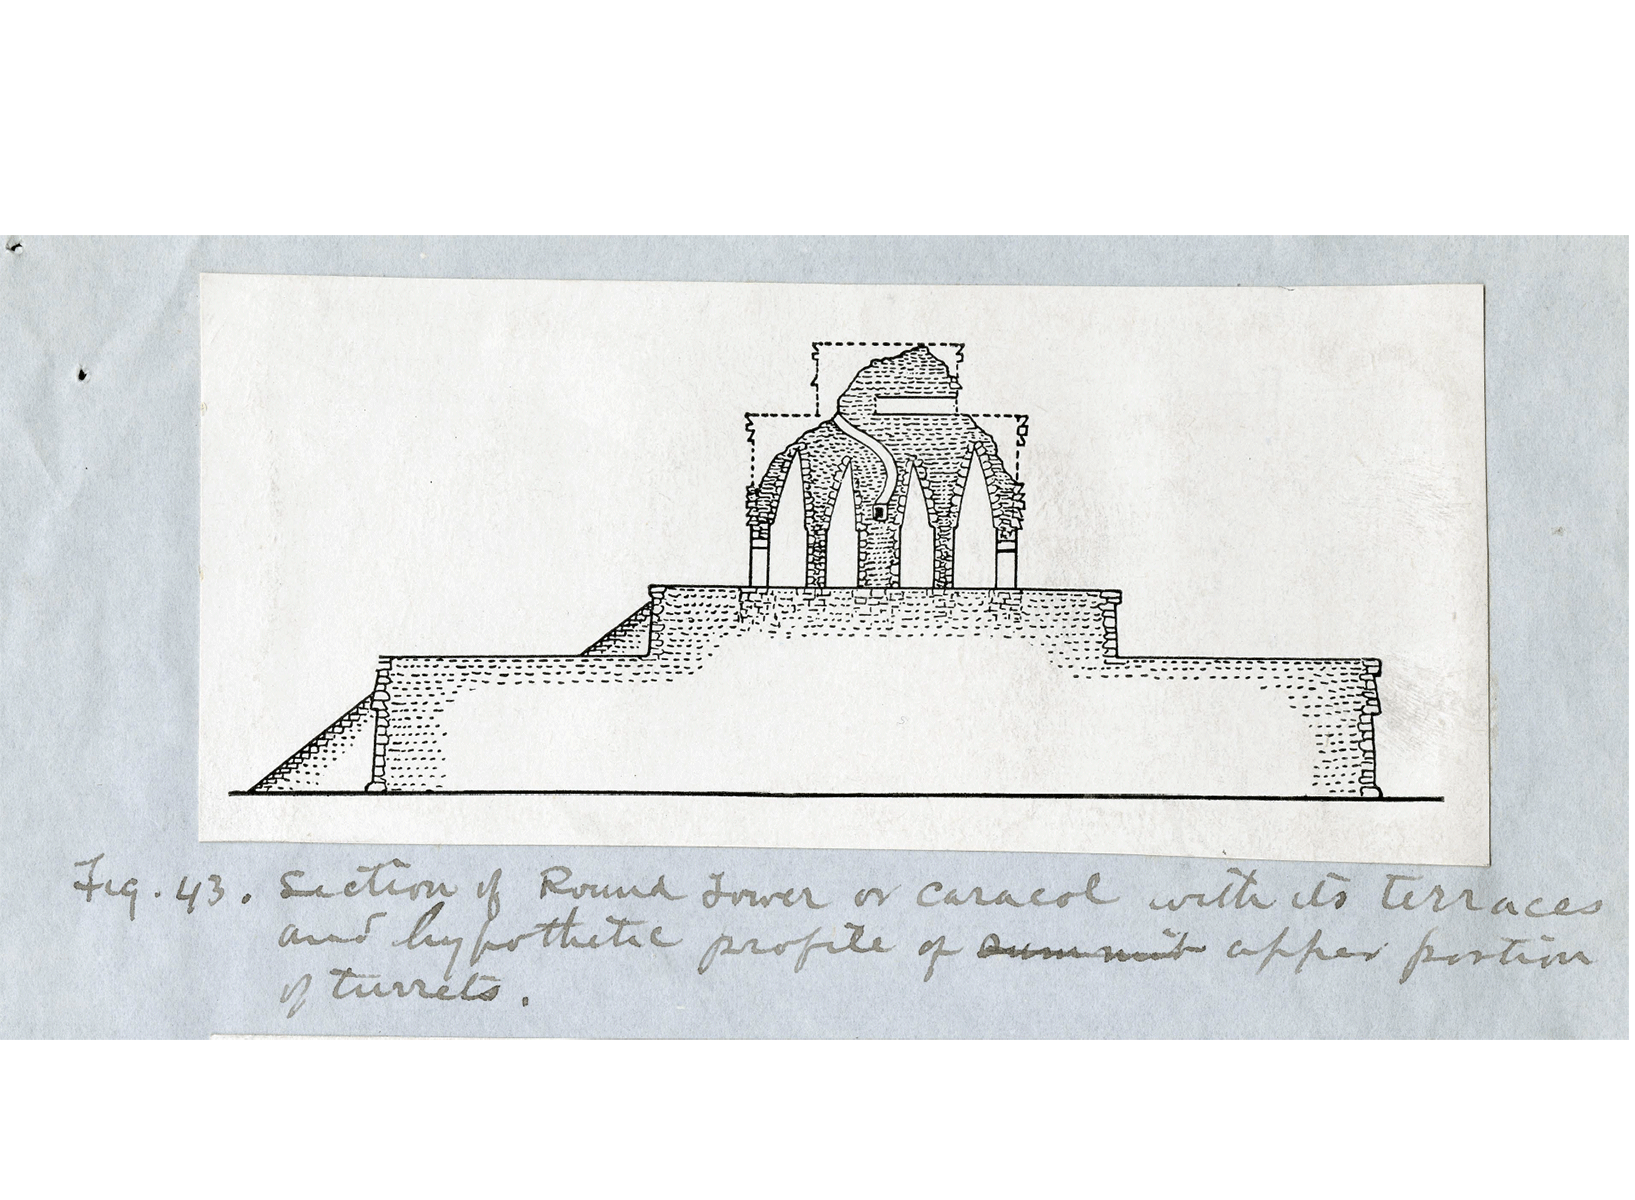 Fig. 43. Section of Round Tower or Caracol with its terraces
and hypothetic profile of summit upper portion
of turrets.